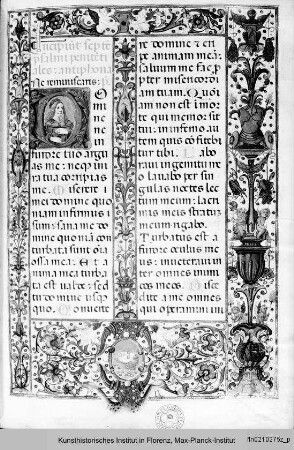 Incipiut septe
psalmi penitẽti
ales: antiphona
Ne reminiscaris: P
Omi
ne
ne
in
furore tuo argu
as me: neq̃ in i
ra tua corripias
me. Miserere i
mei domine quo
niam infirmus
sum: sana me do
mine quoniã con
turbata sunt oĩa
ossa mea: Et a
nima mea turba
ta est ualde: sed
tu domine usq̃
quo. Conuerte
re domine et eri
pe animam meã:
saluum me fac p
pter misericordi
am tuam. Quoni
am non est i mor
te qui memor sit
tui: in inferno au
tem quis cõfitebi
tur tibi. Labo
raui in gemitu me
o lauabo per sin
gulas noctes lec
tum meum: lacri
mis meis stratuz
meum rigabo.
Turbatus est a
furore oculus me
us: inueteraui in
ter omnes inimi
cos meos. Disce
dite a me omnes
qui operamini ini
Kunsthistorisches Institut in Florenz, Max-Planck-Institut
fln0210276z_p